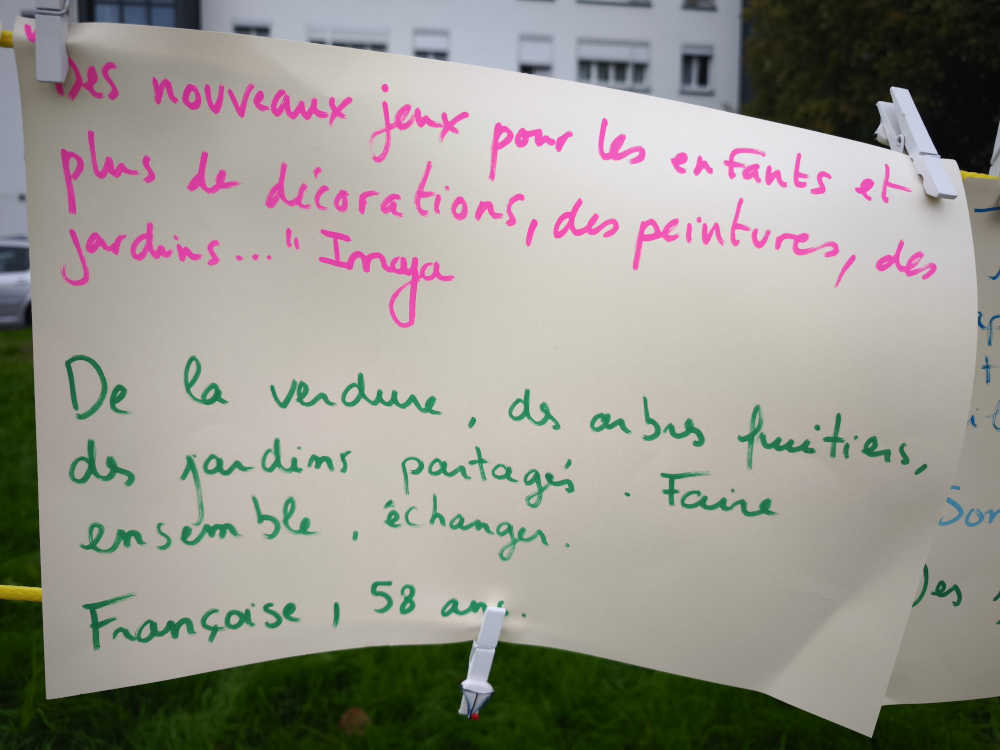 "Des nouveaux jeux pour les enfants et
plus de décorations, des peintures, des
jardins..." Imaya
De la verdure, des arbres fruitiers,
des jardins partagés. Faire
ensemble, échanger.
Françoise, 58 ans.
Des